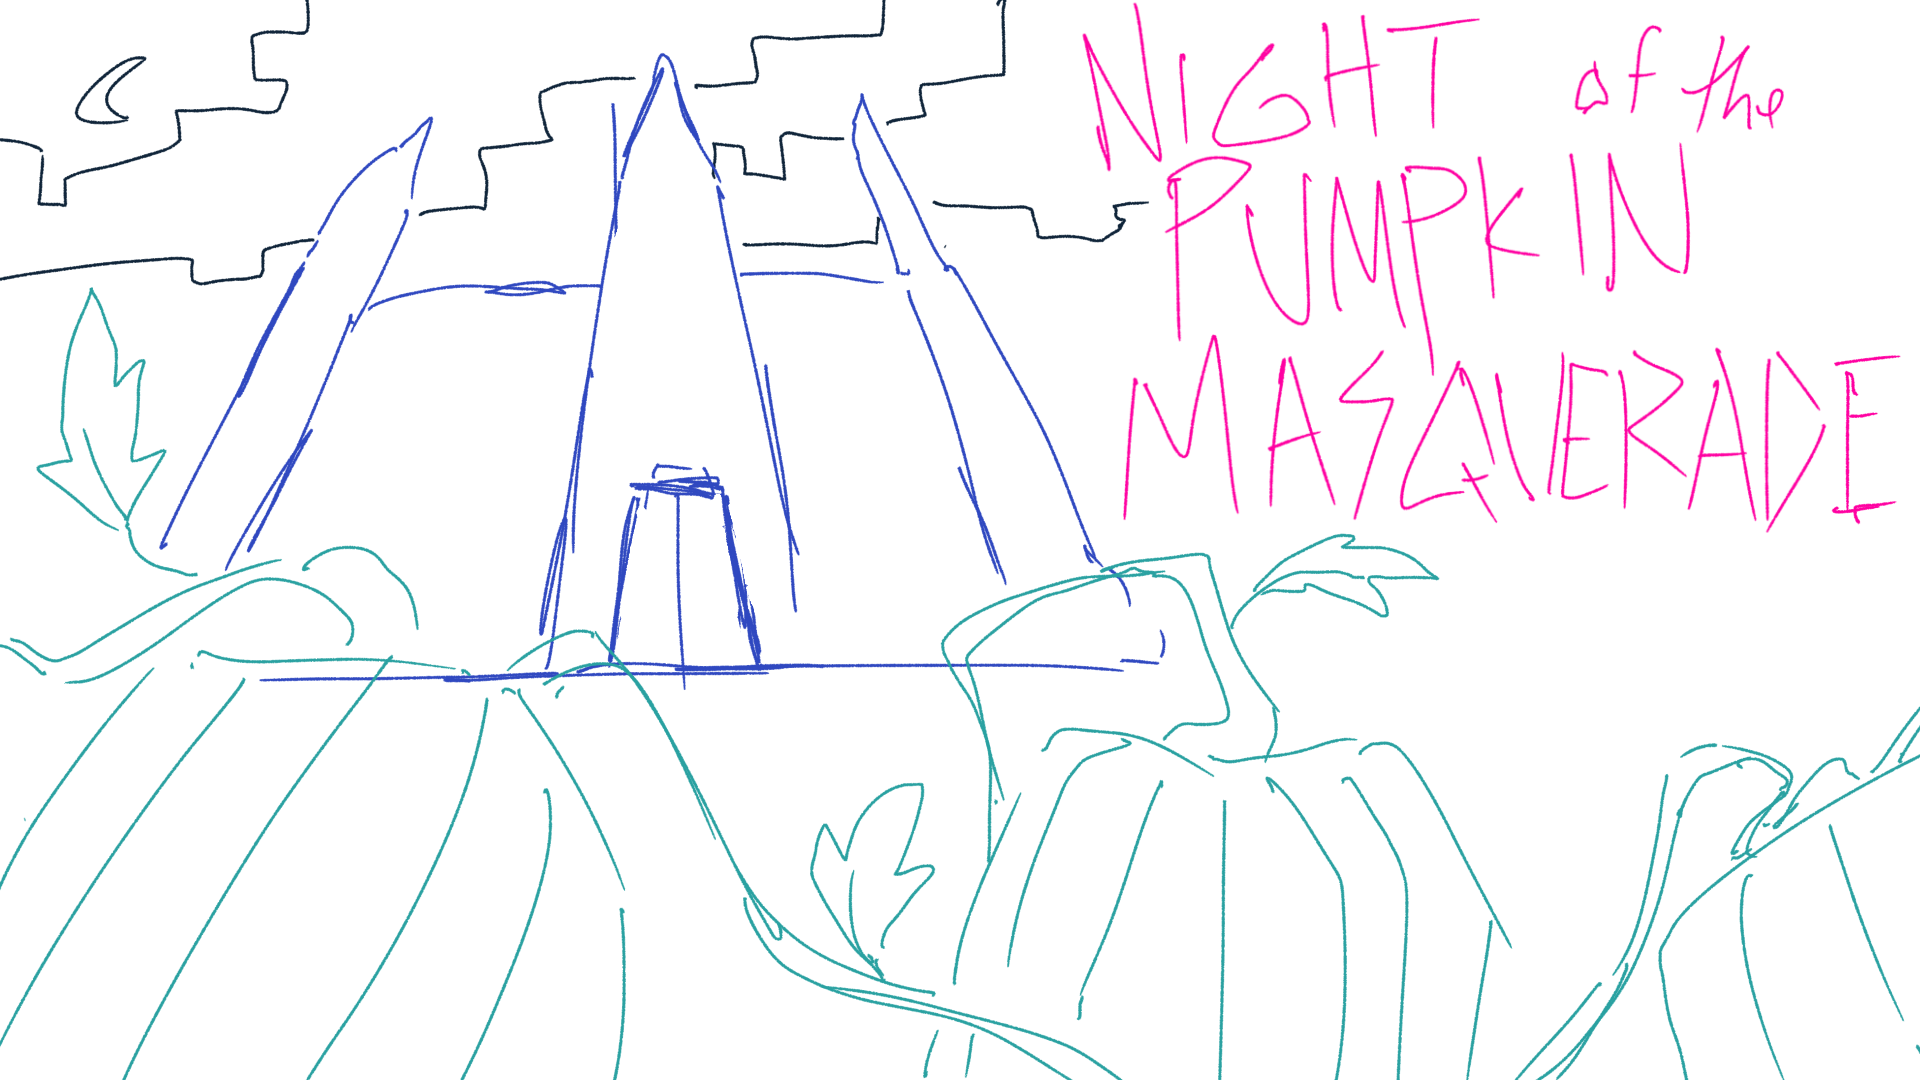 NIGHT of the
PUMPKIN
MASQUERADE